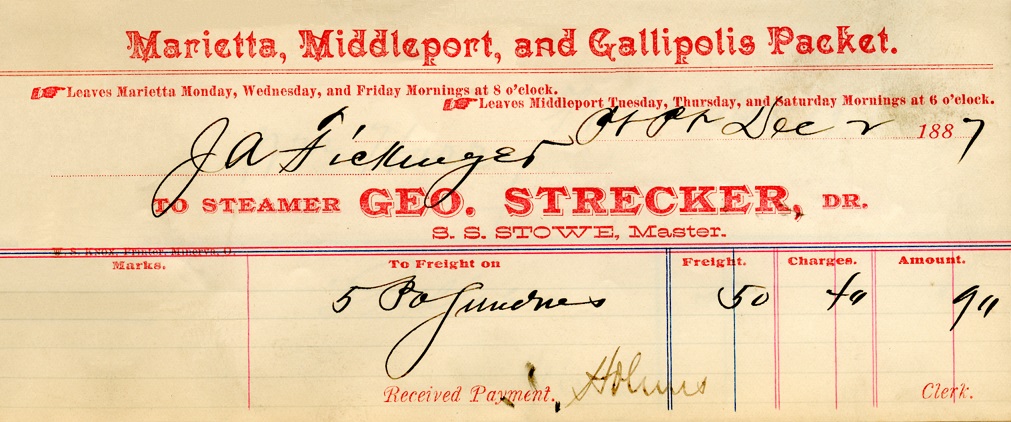 Marietta, Middleport, and Gallipolis Packet.
Leaves Marietta Monday, Wednesday, and Friday Mornings at 8 o'clock.
Leaves Middleport Tuesday, Thursday, and Saturday Mornings at 6 o'clock.
Pt Pt Dec 2 1887
J A Fickinger
TO STEAMER GEO. STRECKER, DR.
S. S. STOWE, Master.
W. S. Knox, Printer, Minerva, O.
Marks. To Freight on Freight. Charges. Amount.
5 Sundries 50 4" 9"
Received Payment, Holmes Clerk.